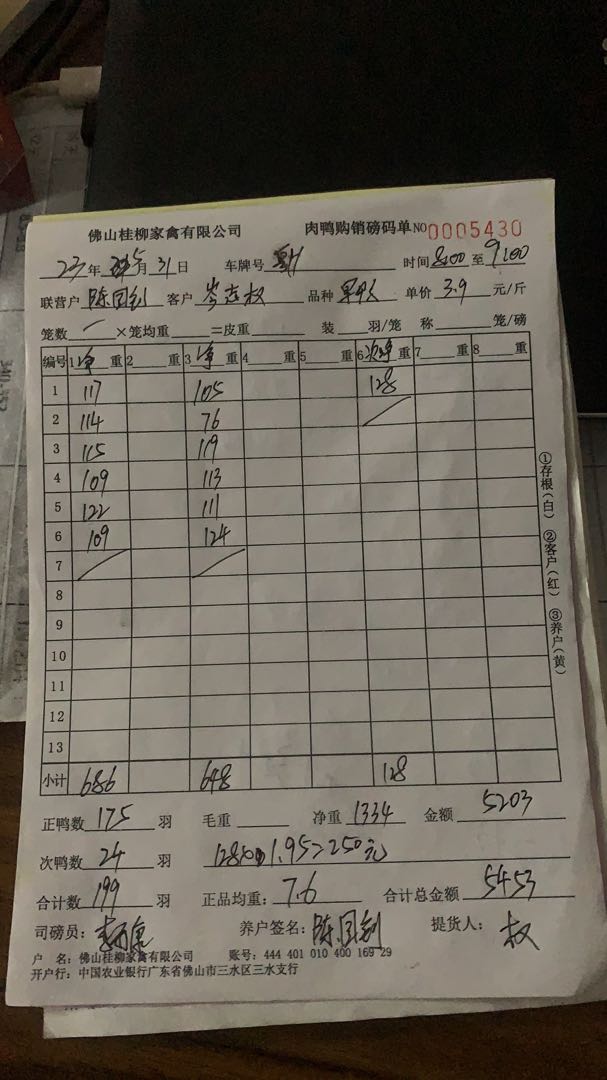 佛山桂柳家禽有限公司 肉鸭购销磅码单 NO 0005430
23年 5月31日 车牌号 时间 8:00 至 9:00
联营户 陈国钊 客户 岑志权 品种 单价 3.9 元/斤
笼数 ×笼均重 =皮重 装 羽/笼 称 笼/磅
编号 1净重 2 重 3净重 4 重 5 重 6次净重 7 重 8 重
1 117 105 128
2 114 76
3 115 119
4 109 113
5 122 111
6 109 124
7
8
9
10
11
12
13
小计 686 648 128
①存根(白) ②客户(红) ③养户(黄)
正鸭数 175 羽 毛重 净重 1334 金额 5203
次鸭数 24 羽 128 1.95=250元
合计数 199 羽 正品均重: 7.6 合计总金额 5453
司磅员: 养户签名: 陈国钊 提货人: 权
户 名: 佛山桂柳家禽有限公司 账号: 444 401 010 400 169 29
开户行: 中国农业银行广东省佛山市三水区三水支行